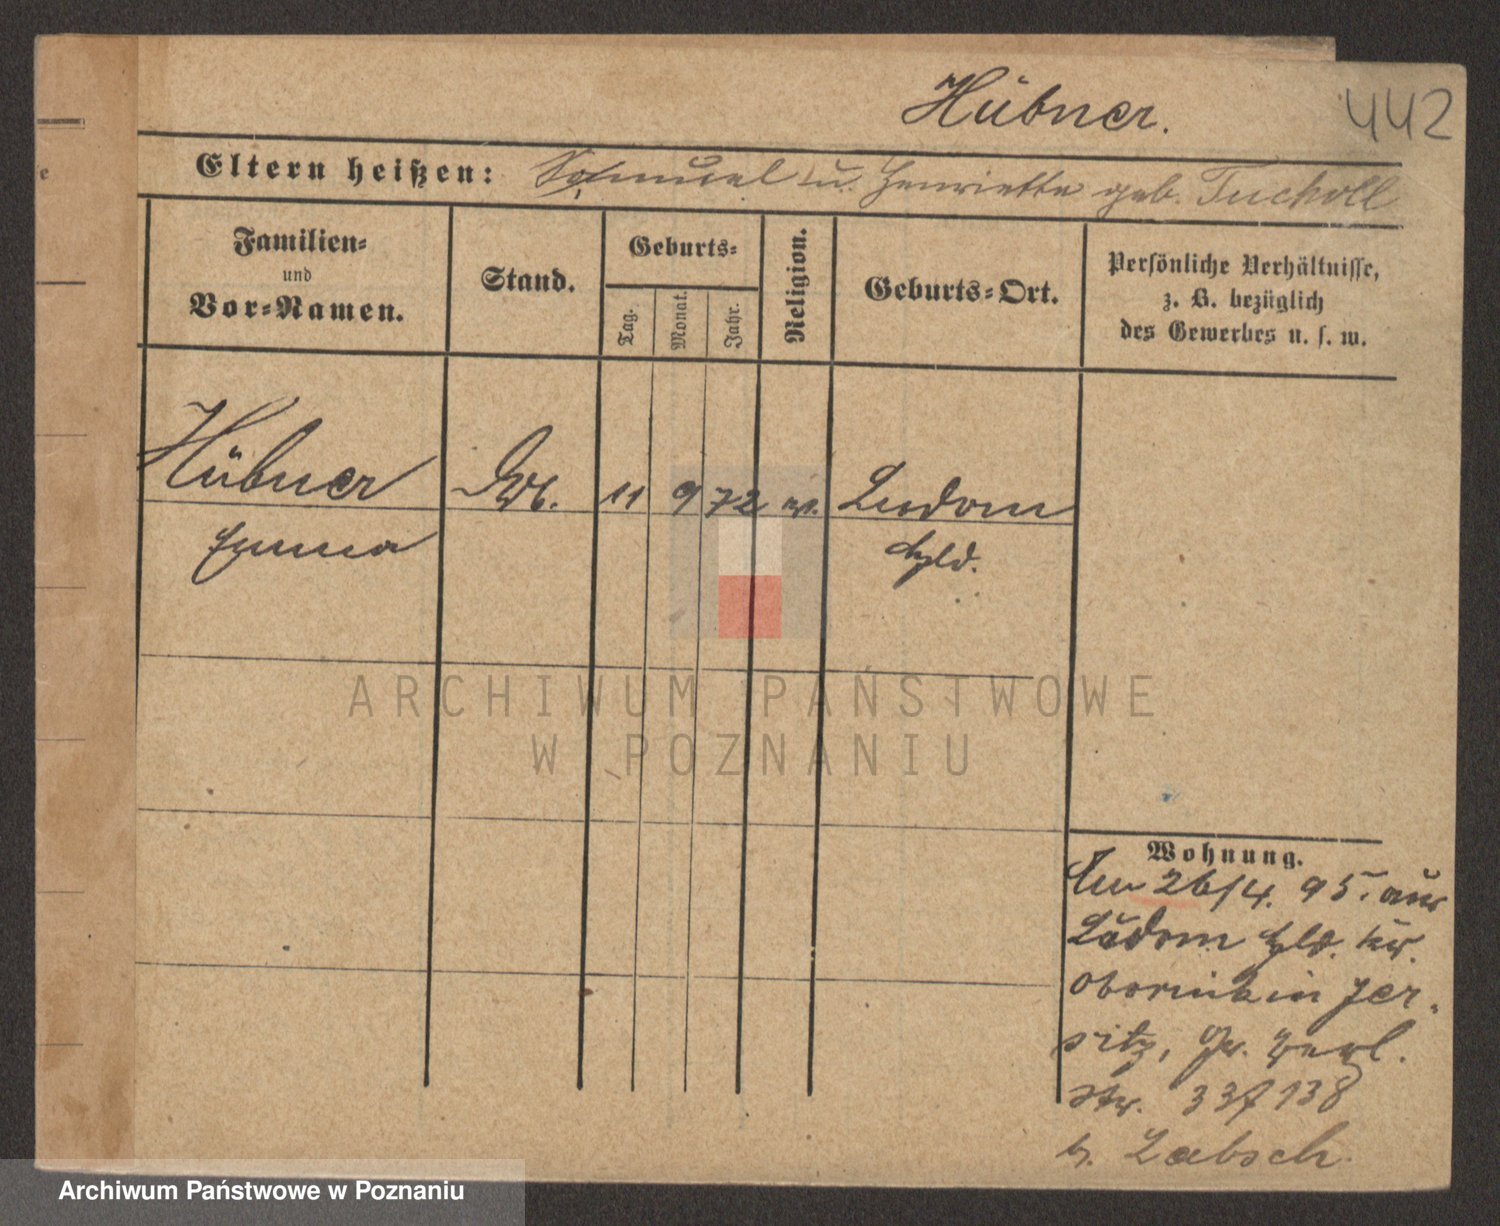 Hübner.
442
Eltern heißen: Samuel u. Henriette geb. Tuckoll
Familien-
und
Vor-Namen.
Stand.
Geburts-
Tag.
Monat.
Jahr.
Religion.
Geburts-Ort.
Persönliche Verhältnisse,
z. B. bezüglich
des Gewerbes u. s. w.
Hübner
11 9 72
Ludom
Emma
Hld.
ARCHIWUM PAŃSTWOWE
W POZNANIU
Wohnung.
26/4. 95. aus
Ludom Hld. Kr.
Obornik in Jer-
sitz, Gr. Berl.
Str. 137/138
b. Labsch.
Archiwum Państwowe w Poznaniu